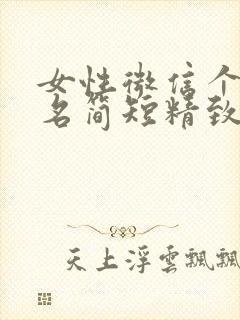 女性微信个
名简短精致
天上浮雲飄飄